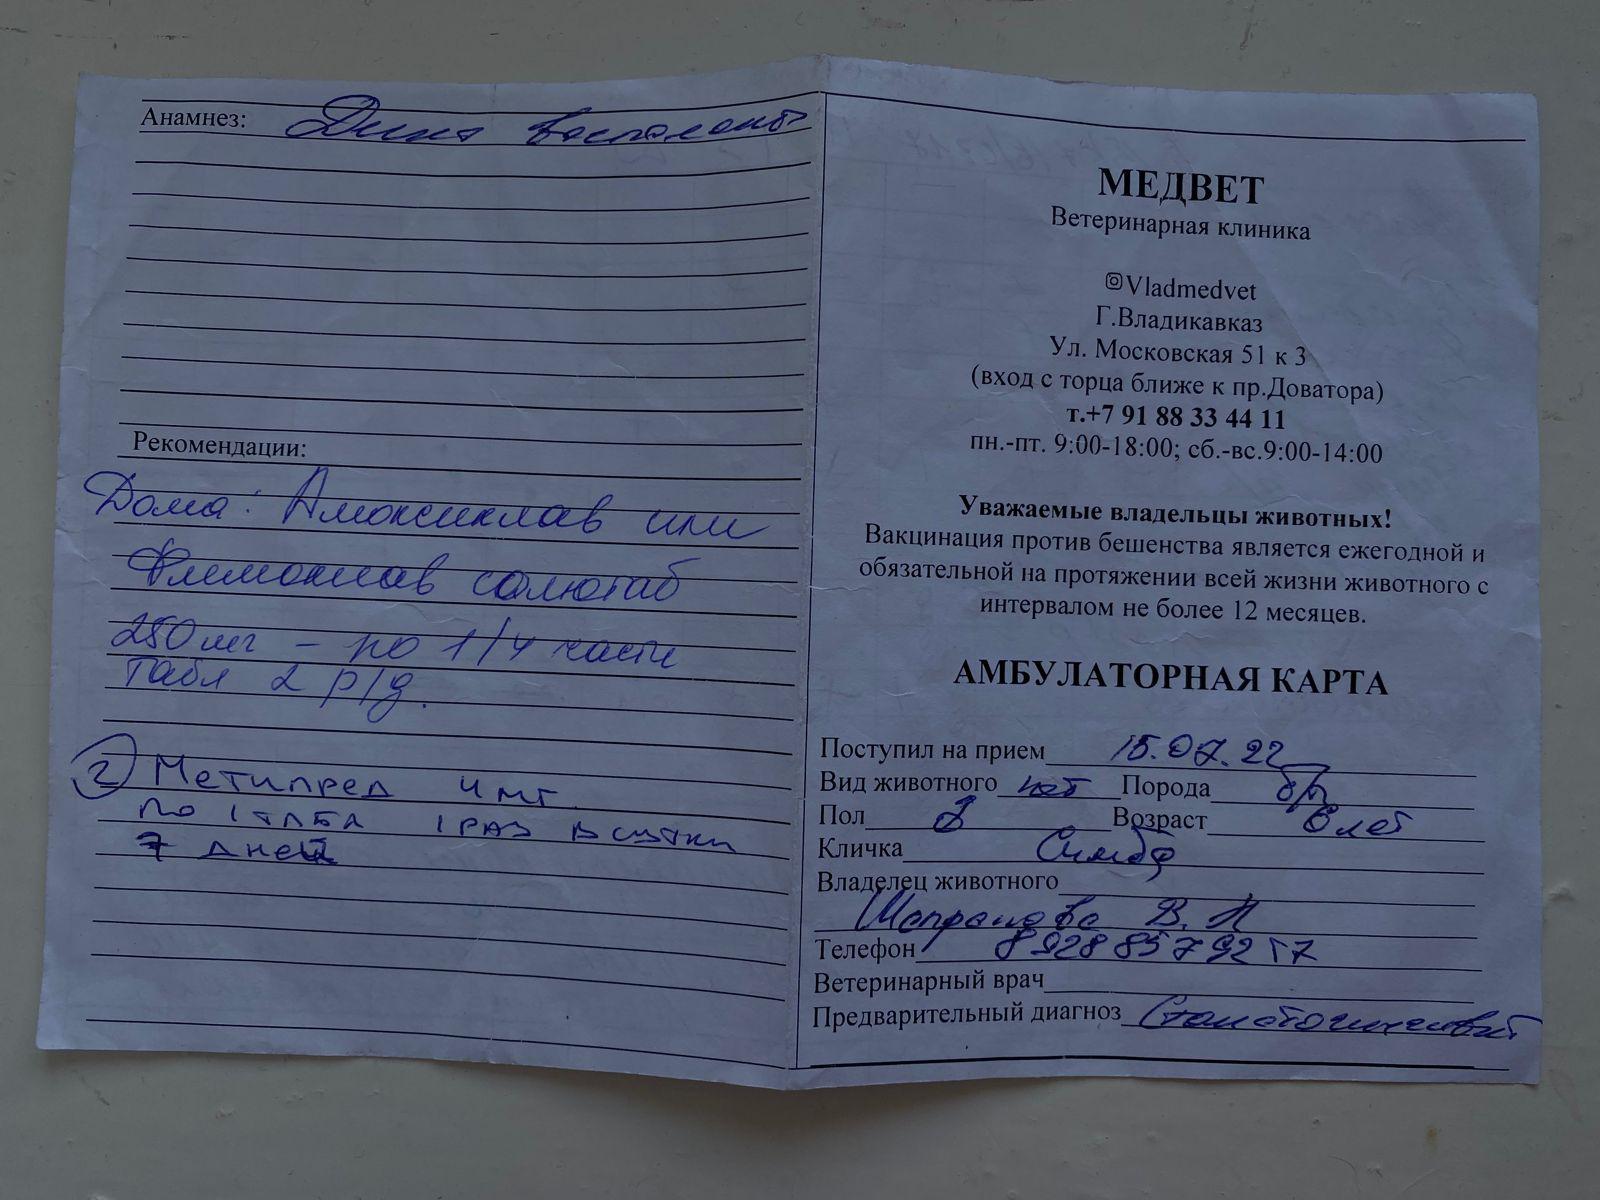 Анамнез: Дина воспален
Рекомендации:
Дома: Амоксиклав или
Флемоклав солютаб
250 мг – по 1/4 части
табл 2 р/д.
2) Метипред 4 мг
по 1 табл 1 раз в сутки
7 дней
МЕДВЕТ
Ветеринарная клиника
Vladmedvet
Г.Владикавказ
Ул. Московская 51 к 3
(вход с торца ближе к пр.Доватора)
т.+7 91 88 33 44 11
пн.-пт. 9:00-18:00; сб.-вс.9:00-14:00
Уважаемые владельцы животных!
Вакцинация против бешенства является ежегодной и
обязательной на протяжении всей жизни животного с
интервалом не более 12 месяцев.
АМБУЛАТОРНАЯ КАРТА
Поступил на прием 15.07.22
Вид животного кот Порода б/п
Пол Возраст 6 лет
Кличка Симба
Владелец животного
В.
Телефон 8 928 857 92 57
Ветеринарный врач
Предварительный диагноз